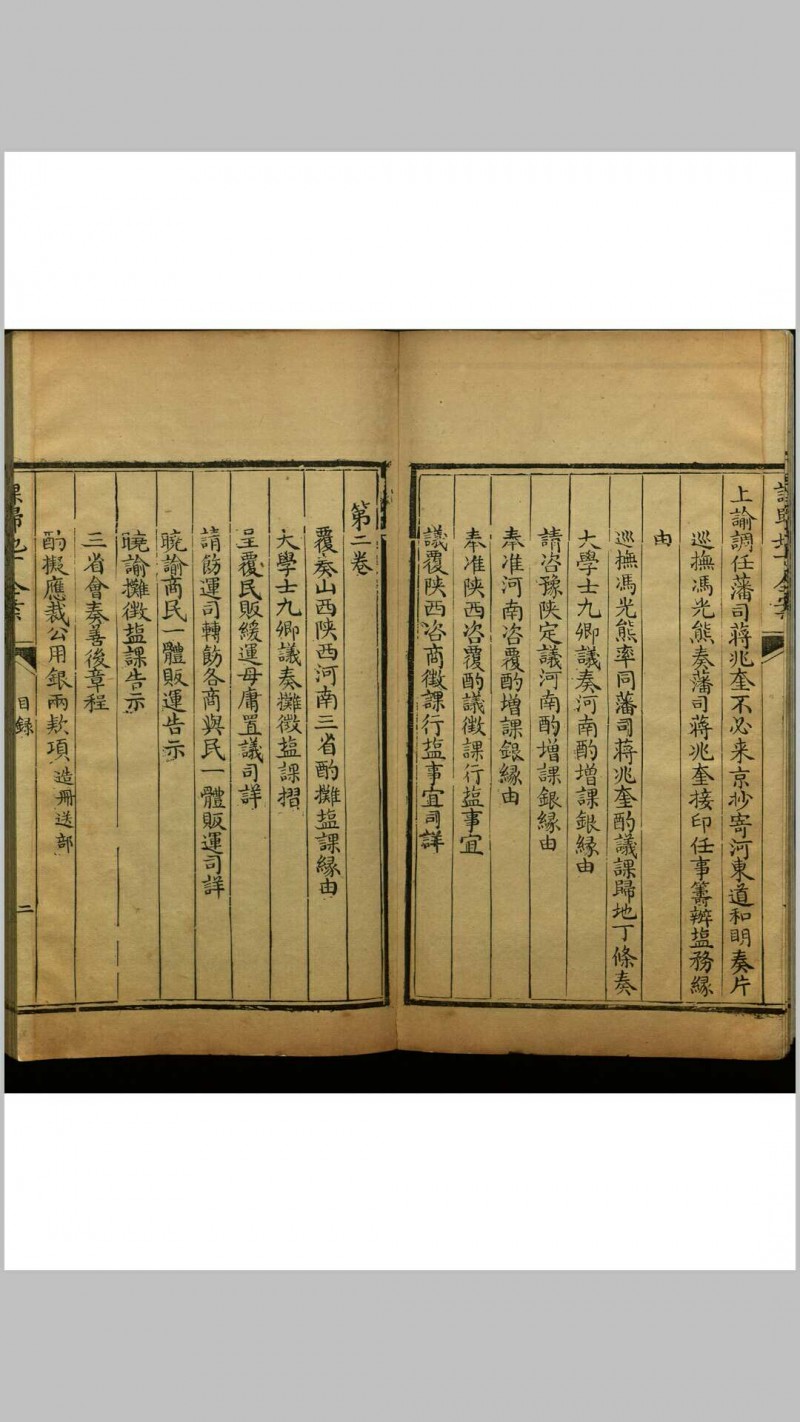 上諭調任藩司蔣兆奎不必来京抄寄河東道和明奏片
巡撫馮光熊奏藩司蔣兆奎接印任事籌辦塩務緣
由
巡撫馮光熊率同藩司蔣兆奎酌議課歸地丁條奏
大學士九卿議奏河南酌増課銀緣由
請咨豫陕定議河南酌増課銀緣由
奉准河南咨覆酌増課銀緣由
奉准陕西咨覆酌議徴課行塩事宜
議覆陕西咨商徴課行塩事宜司詳
第二卷
覆奏山西陕西河南三省酌攤塩課緣由
大學士九卿議奏攤徴塩課摺
呈覆民販緩運毋庸置議司詳
請飭運司轉飭各商與民一體販運司詳
曉諭商民一體販運告示
曉諭攤徴塩課告示
三省會奏善後章程
酌擬應裁公用銀兩欵項造冊送部
課歸地丁全案
目録
二